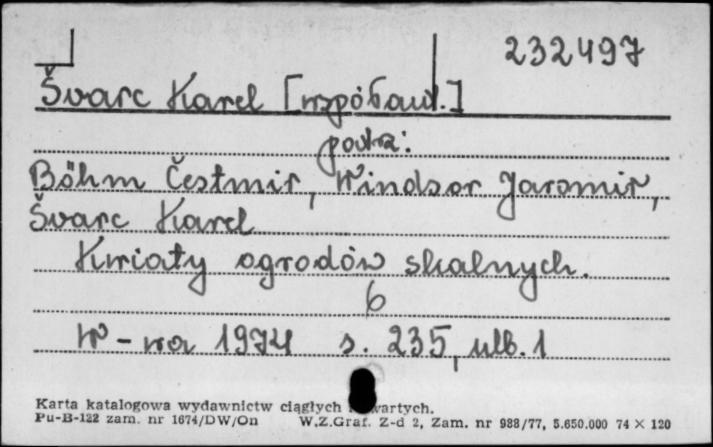 232497
Švarc Karel [współaut.]
patrz:
Böhm Čestmir, Windsor Jaromir,
Švarc Karel
Kwiaty ogrodów skalnych.
6
W-wa 1974 s. 235, ulb. 1
Karta katalogowa wydawnictw ciągłych
Pu-B-122 zam. nr 1674/DW/On W.Z.Graf. Z-d 2, Zam. nr 988/77, 5.650.000 74 × 120